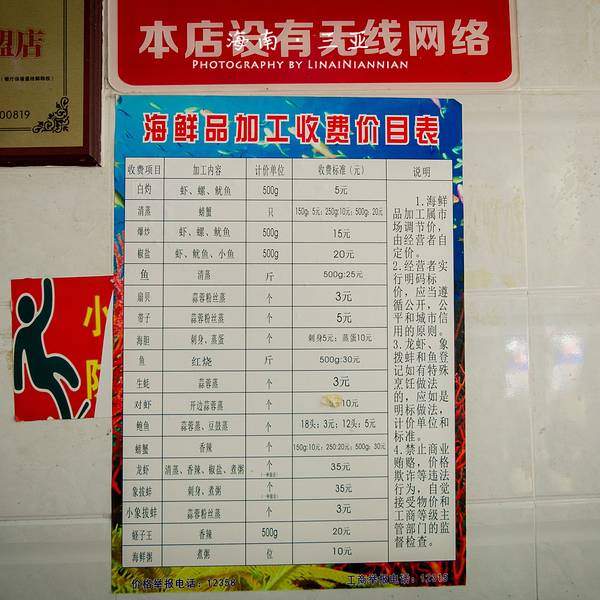 盟店
(餐厅保温最终解释权)
00819
本店没有无线网络
海南·三亚
PHOTOGRAPHY BY LINAINIANNIAN
海鲜品加工收费价目表
收费项目 加工内容 计价单位 收费标准(元) 说明
白灼 虾、螺、鱿鱼 500g 5元
清蒸 螃蟹 只 150g:5元;250g:10元;500g:20元
爆炒 虾、螺、鱿鱼 500g 15元
椒盐 虾、鱿鱼、小鱼 500g 20元
鱼 清蒸 斤 500g:25元
扇贝 蒜蓉粉丝蒸 个 3元
带子 蒜蓉粉丝蒸 个 5元
海胆 刺身、蒸蛋 个 刺身5元;蒸蛋10元
鱼 红烧 斤 500g:30元
生蚝 蒜蓉蒸 个 3元
对虾 开边蒜蓉蒸 个 10元
鲍鱼 蒜蓉蒸、豆鼓蒸 个 18头:3元;12头:5元
螃蟹 香辣 个 150g:10元;250:20元;500g:30元
龙虾 清蒸、香辣、椒盐、煮粥 个 35元
象拔蚌 刺身、煮粥 个 35元
小象拔蚌 蒜蓉粉丝蒸 个 3元
蛏子王 香辣 500g 20元
海鲜粥 煮粥 位 10元
1.海鲜
品加工属市
场调节价,
由经营者自
定价。
2.经营者
实行明码标
价,应当遵
循公开,公
平和诚市信
用的原则。
3.龙虾、象
拨蚌和鱼登
记如有特殊
烹饪做法
的,应如是
明标做法,
计价单位和
标准。
4.禁止商业
贿赂,价格
欺诈等违法
行为,自觉
接受物价和
工商等级主
管部门的监
督检查。
价格举报电话:12358
工商举报电话:12315
小